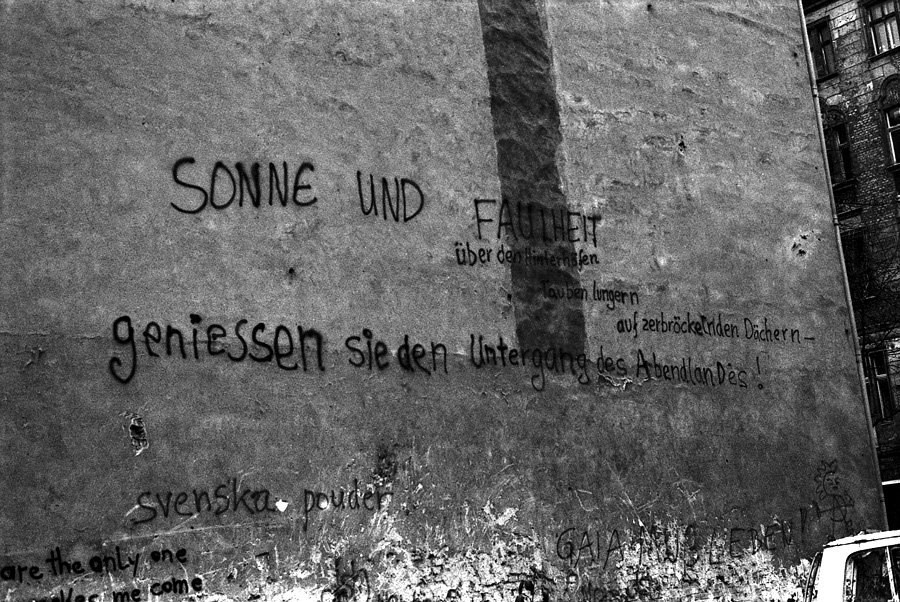 SONNE UND FAULHEIT
über den Hinterhöfen
Tauben lungern
auf zerbröckelnden Dächern –
geniessen sie den Untergang des Abendlandes!
svenska pouder
GAIA MUß LEBEN!
are the only one
makes me come